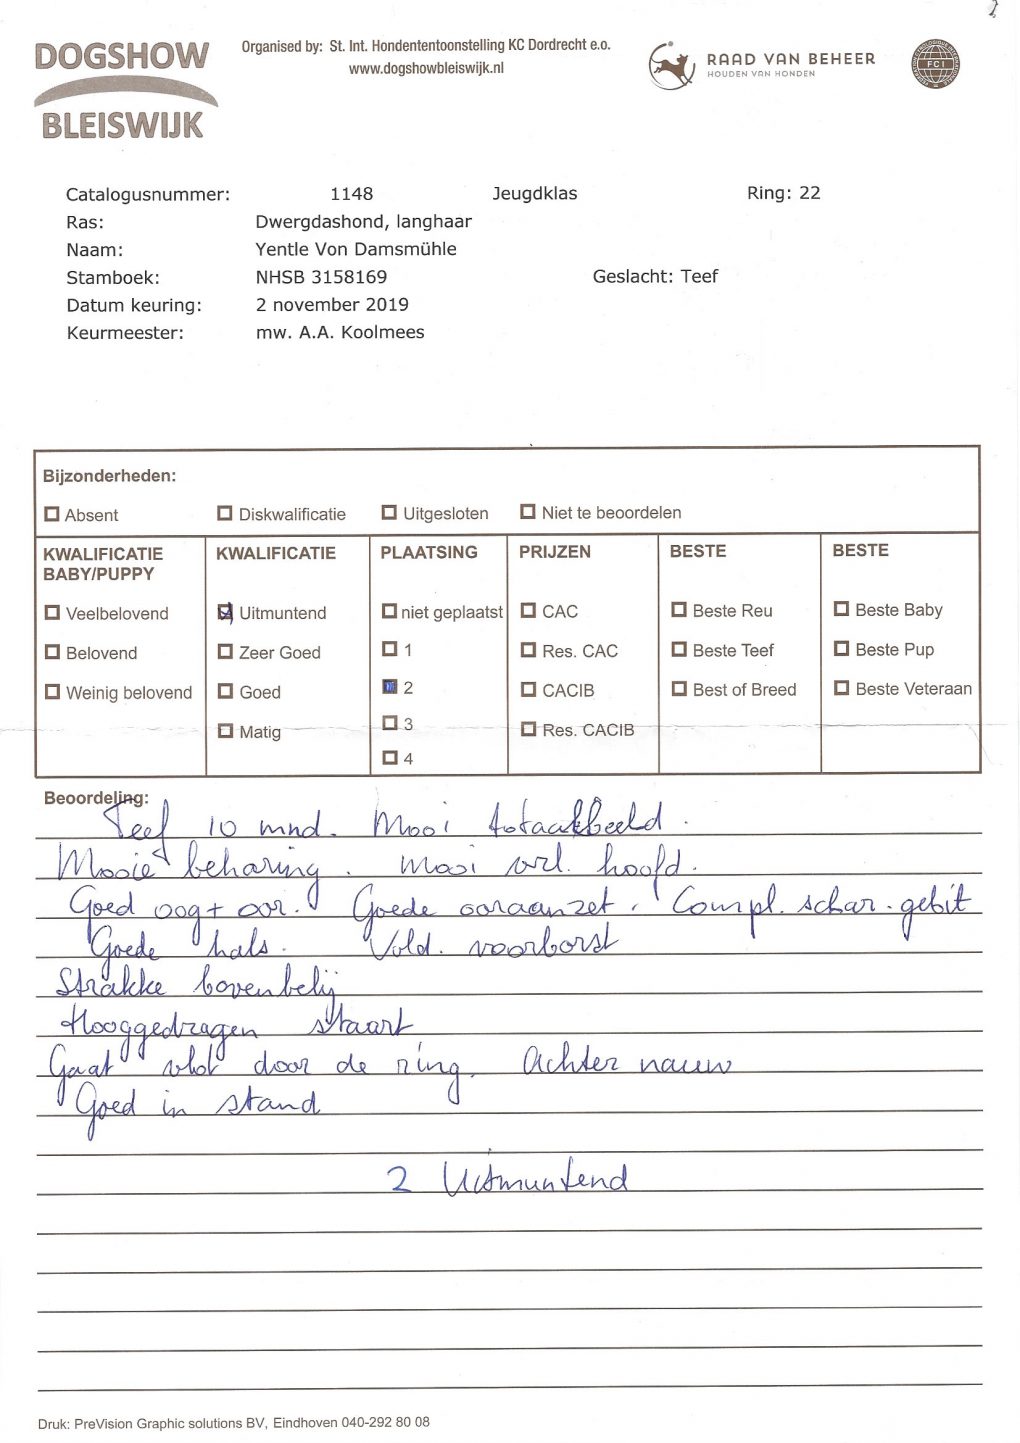 DOGSHOW
BLEISWIJK
Organised by: St. Int. Hondententoonstelling KC Dordrecht e.o.
www.dogshowbleiswijk.nl
RAAD VAN BEHEER
HOUDEN VAN HONDEN
FCI
Catalogusnummer: 1148 Jeugdklas Ring: 22
Ras: Dwergdashond, langhaar
Naam: Yentle Von Damsmühle
Stamboek: NHSB 3158169 Geslacht: Teef
Datum keuring: 2 november 2019
Keurmeester: mw. A.A. Koolmees
Bijzonderheden:
Absent Diskwalificatie Uitgesloten Niet te beoordelen
KWALIFICATIE BABY/PUPPY
Veelbelovend
Belovend
Weinig belovend
KWALIFICATIE
Uitmuntend
Zeer Goed
Goed
Matig
PLAATSING
niet geplaatst
1
2
3
4
PRIJZEN
CAC
Res. CAC
CACIB
Res. CACIB
BESTE
Beste Reu
Beste Teef
Best of Breed
BESTE
Beste Baby
Beste Pup
Beste Veteraan
Beoordeling:
Teef 10 mnd. Mooi totaalbeeld.
Mooie beharing. Mooi vrl. hoofd.
Goed oog + oor. Goede ooraanzet. Compl. schar. gebit
Goede hals. Vold. voorborst
Strakke bovenbelij
Hooggedragen staart
Gaat vlot door de ring. Achter nauw
Goed in stand
2 Uitmuntend
Druk: PreVision Graphic solutions BV, Eindhoven 040-292 80 08